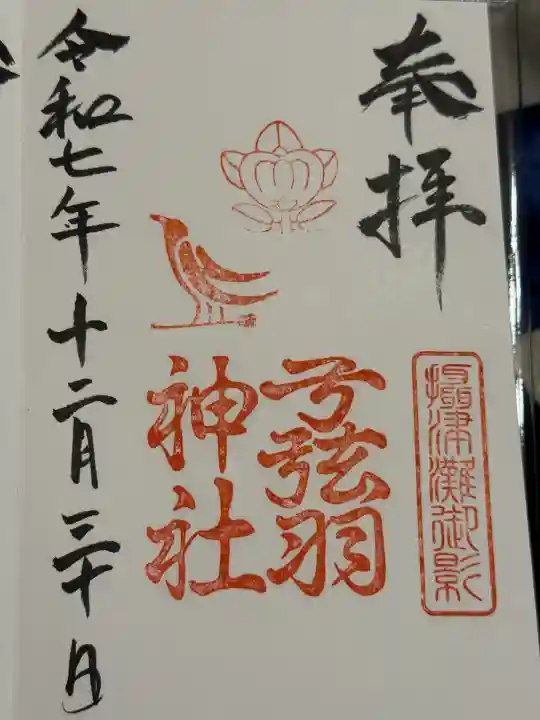 奉拝
摂津灘御影
弓弦羽
神社
令和七年十二月三十日